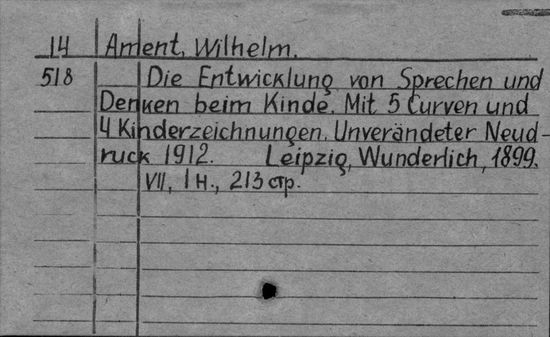 14 Ament, Wilhelm.
518 Die Entwicklung von Sprechen und
Denken beim Kinde. Mit 5 Curven und
4 Kinderzeichnungen. Unverändeter Neud-
ruck 1912. Leipzig, Wunderlich, 1899.
VII, 1 н., 213 стр.